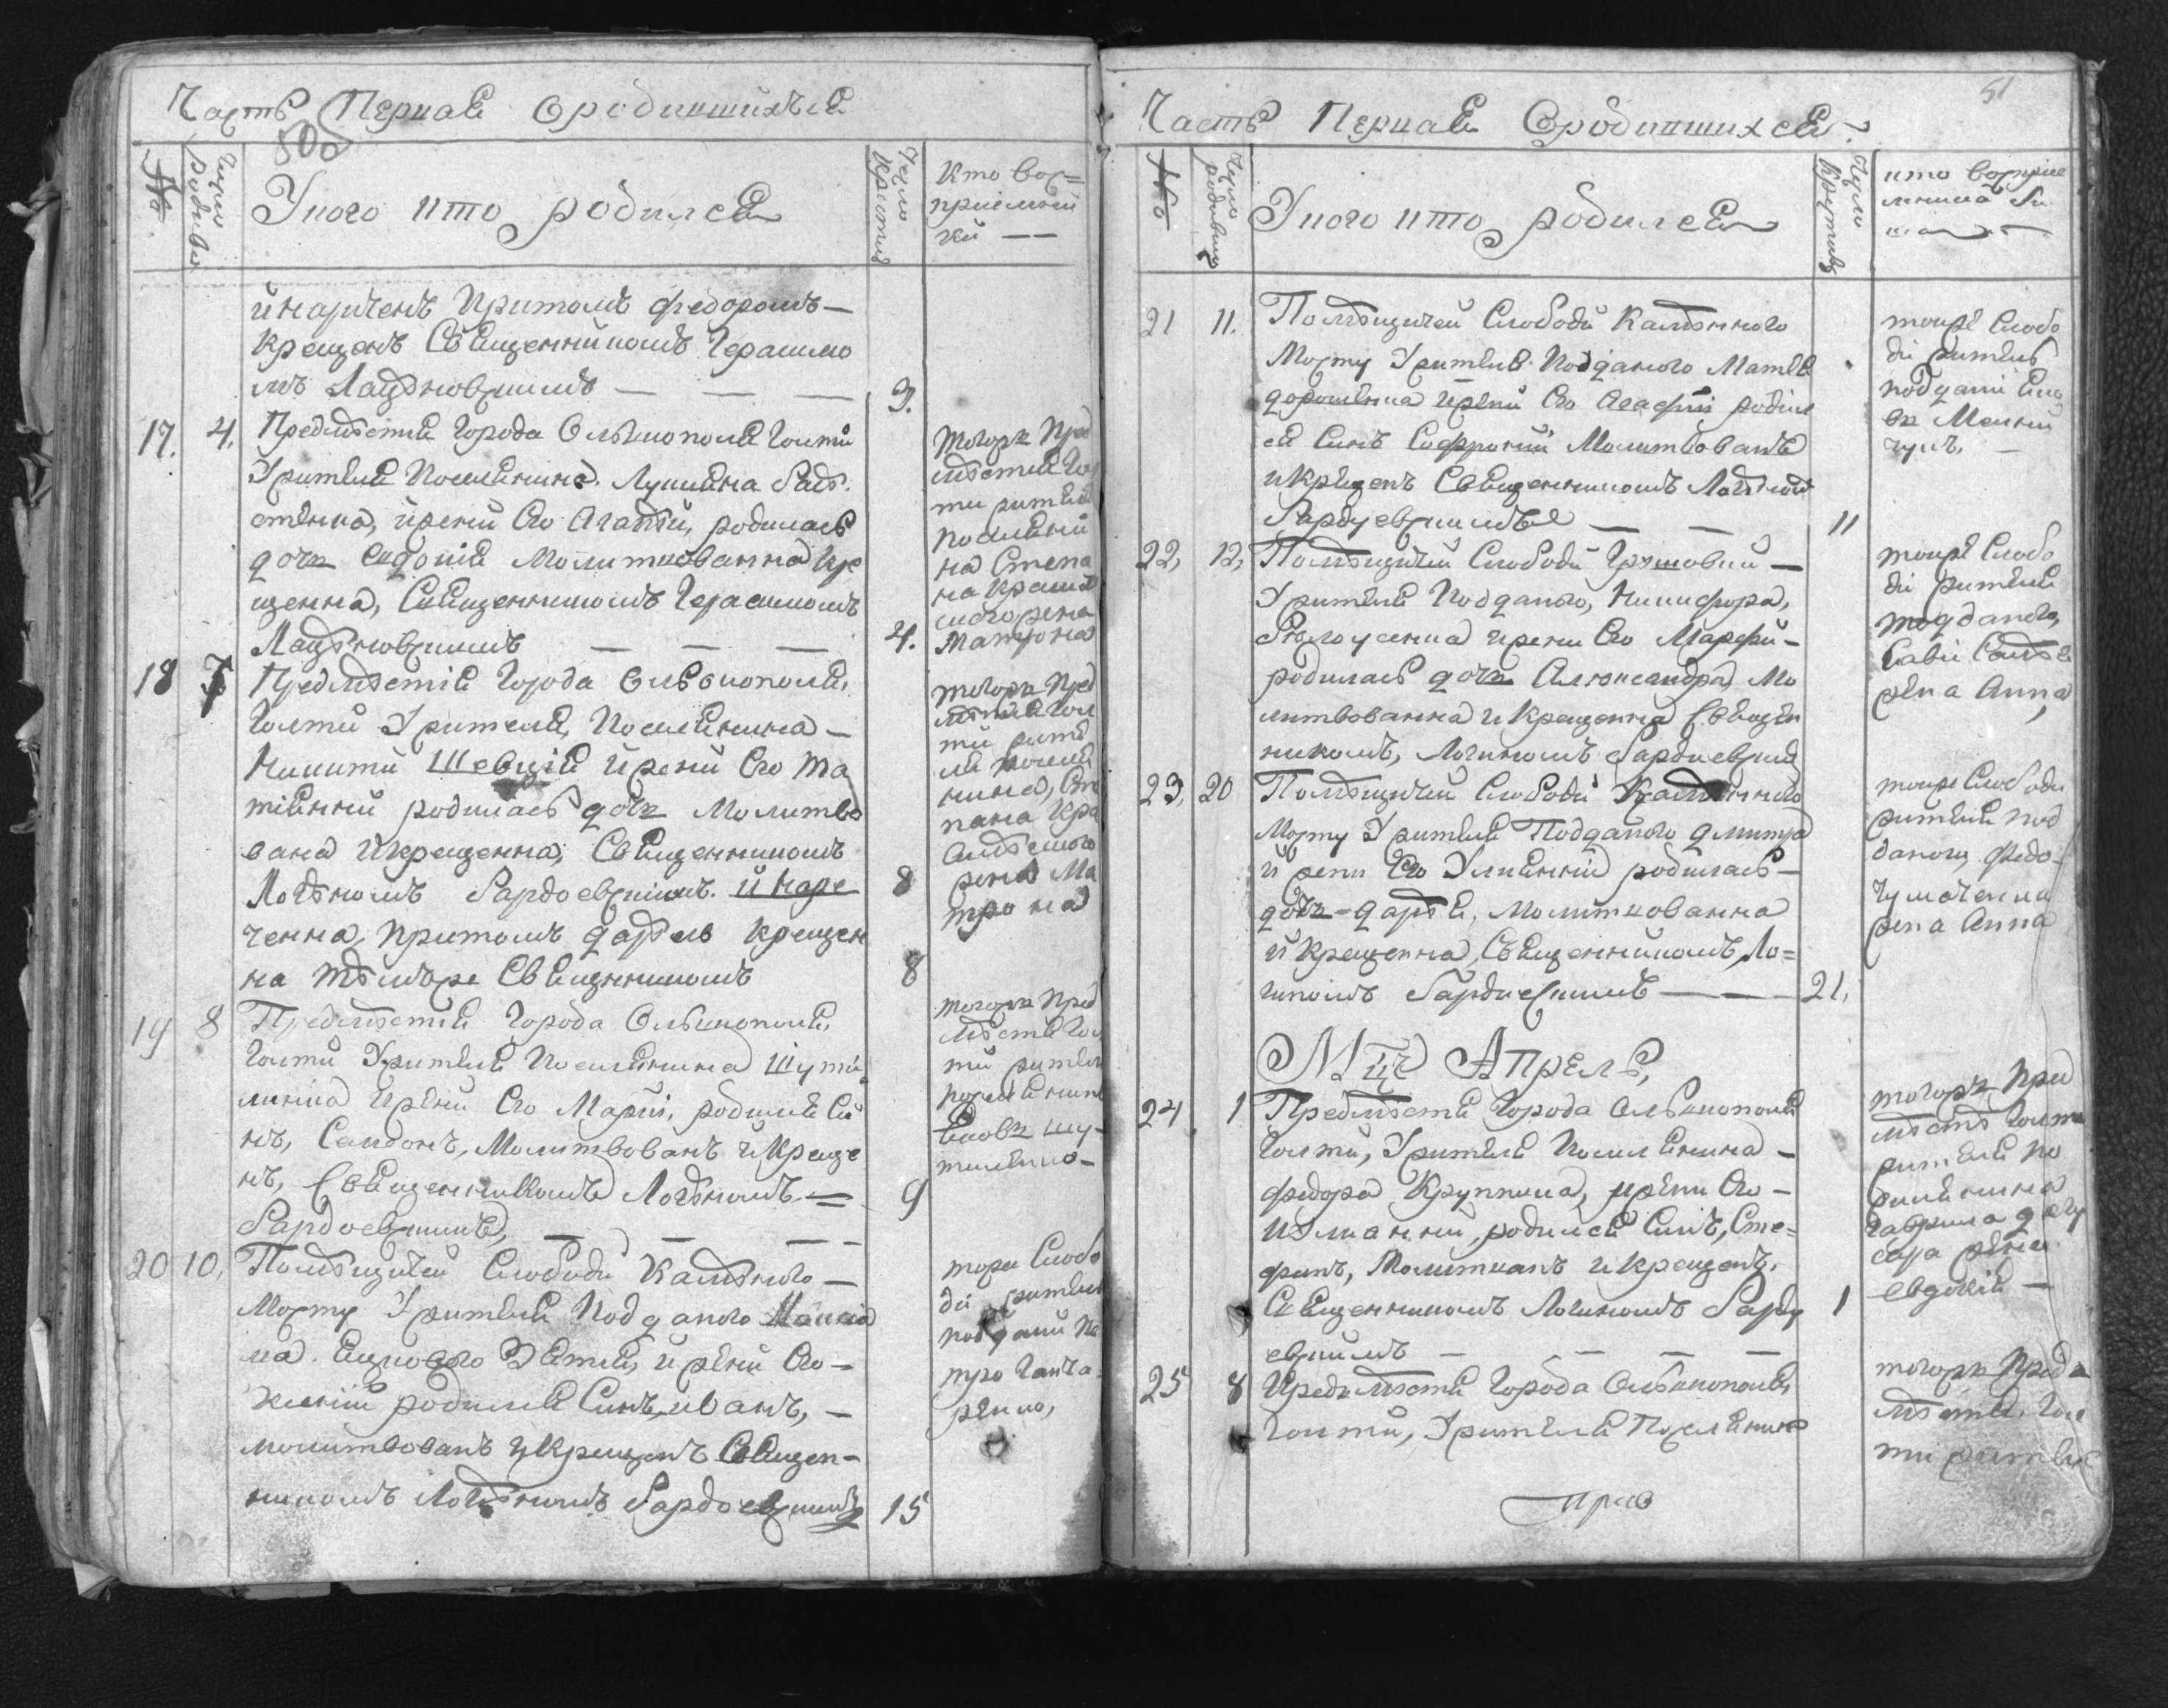 Часть Первая ородившихъся
50об
№
Число родивы
Укого кто родился
Число крестив
Кто вос=
приемни
ки — —
инаричень Притомъ федоромъ —
Крещенъ Священникомъ Герасимо
мъ Лацѣновскимъ — — —
3.
17. 4. Предмѣстия Города Олвиополя Голти
Ужителя Поселянина Лукияна
ижени Его Агафіи, родилась
дочь Молиткованна икре
щенна, Священникомъ Герасимомъ
Лацѣновскимъ — — —
4.
тогожъ Пред
мѣстия Гол
ти жителя
поселяни
на Степа
на
жена
Матрона
18 7 Предмѣстія Города Олвиополя,
Голти Ужителя, Поселянина —
Никити Шевція ижени Его Та
тіянни родилась дочь Молитво
вана икрещенна, Священникомъ
Логѣномъ Бардоевскимъ. и наре
ченна, притомъ дарьею крещен
на Священникомъ
8
8
тогожъ Пред
мѣстия Гол
ти жите
ля посел
нина, Сте
пана
жена Ма
трона
19 8 Предмѣстия Города Олвиополя,
Голти Ужителя Поселянина Шути
ленка ижени Его Марии, родился Си
нъ, Самсонъ, Молитвованъ икреще
нъ, Священникомъ Логѣномъ —
Бардоевскимъ, — — —
9
тогожъ Пред
мѣстя Гол
ти жителя
поселянина
Якова Шу-
тиленко —
20 10, Помѣщичей Слободи Камѣного —
Мосту Ужителя Подданого Макси
ма. ижени Его —
Ксении родился Синъ, иванъ, —
молитвованъ икрещенъ Священ-
никомъ Логѣномъ Бардоевскимъ
15
тоже Слобо
ди жителя
подданий Пе
тро Гонча-
ренко,
51
Часть Первая Ородившихся
№
Число родивши
Укого кто родился
Число Крестив
кто восприе
21 11. Помѣщичей Слободи Камѣнного
Мосту Ужителя Подданого Матвея
дорошенка ижени Его Агафии родил
ся Синъ Софроний Молитвованъ
икрещенъ Священникомъ Логѣномъ
Бардуевскимъ — —
11
тоиже Слобо
ди житель
подданий Яко
въ
22, 12, Помѣщичей Слободи Грушовки —
Ужителя Подданого, Никифора,
Бѣлоусенка ижени Его Марфи —
родилась дочь Александра Мо
литвованна икрещенна Священ
никомъ, Логиномъ Бардиевским
тоиже Слобо
ди жителя
подданого,
Сави
жена Анна,
23, 20 Помѣщичей Слободи Камѣнного
Мосту Ужителя Подданого дмитра
ижени Его Улияннiи родилась —
дочь — дарья, Молиткованна
икрещенна, Священникомъ, Ло=
гиномъ Бардиевскимъ — — —
21,
тоиже Слободи
жителя под
даного, Федо-
Чумаченка
жена Анна
Мцъ Апрель,
24 1 Предмѣстя Города Олвиополя
Голти, Ужителя Поселянина —
федора Крупкина, ижени Его —
Улианни, родился Синъ, Сте=
фанъ, Молитканъ икрещенъ,
Священникомъ Логиномъ Барду
евскимъ — — — —
1
тогожъ Пред
мѣстя Голти
жителя По
селянина
Гаврила
жена
Евдокия —
25 8 Предмѣстя Города Олвиополя,
Голти, Ужителя Поселянина
тогожъ Пред
мѣстя, Гол
ти жителя